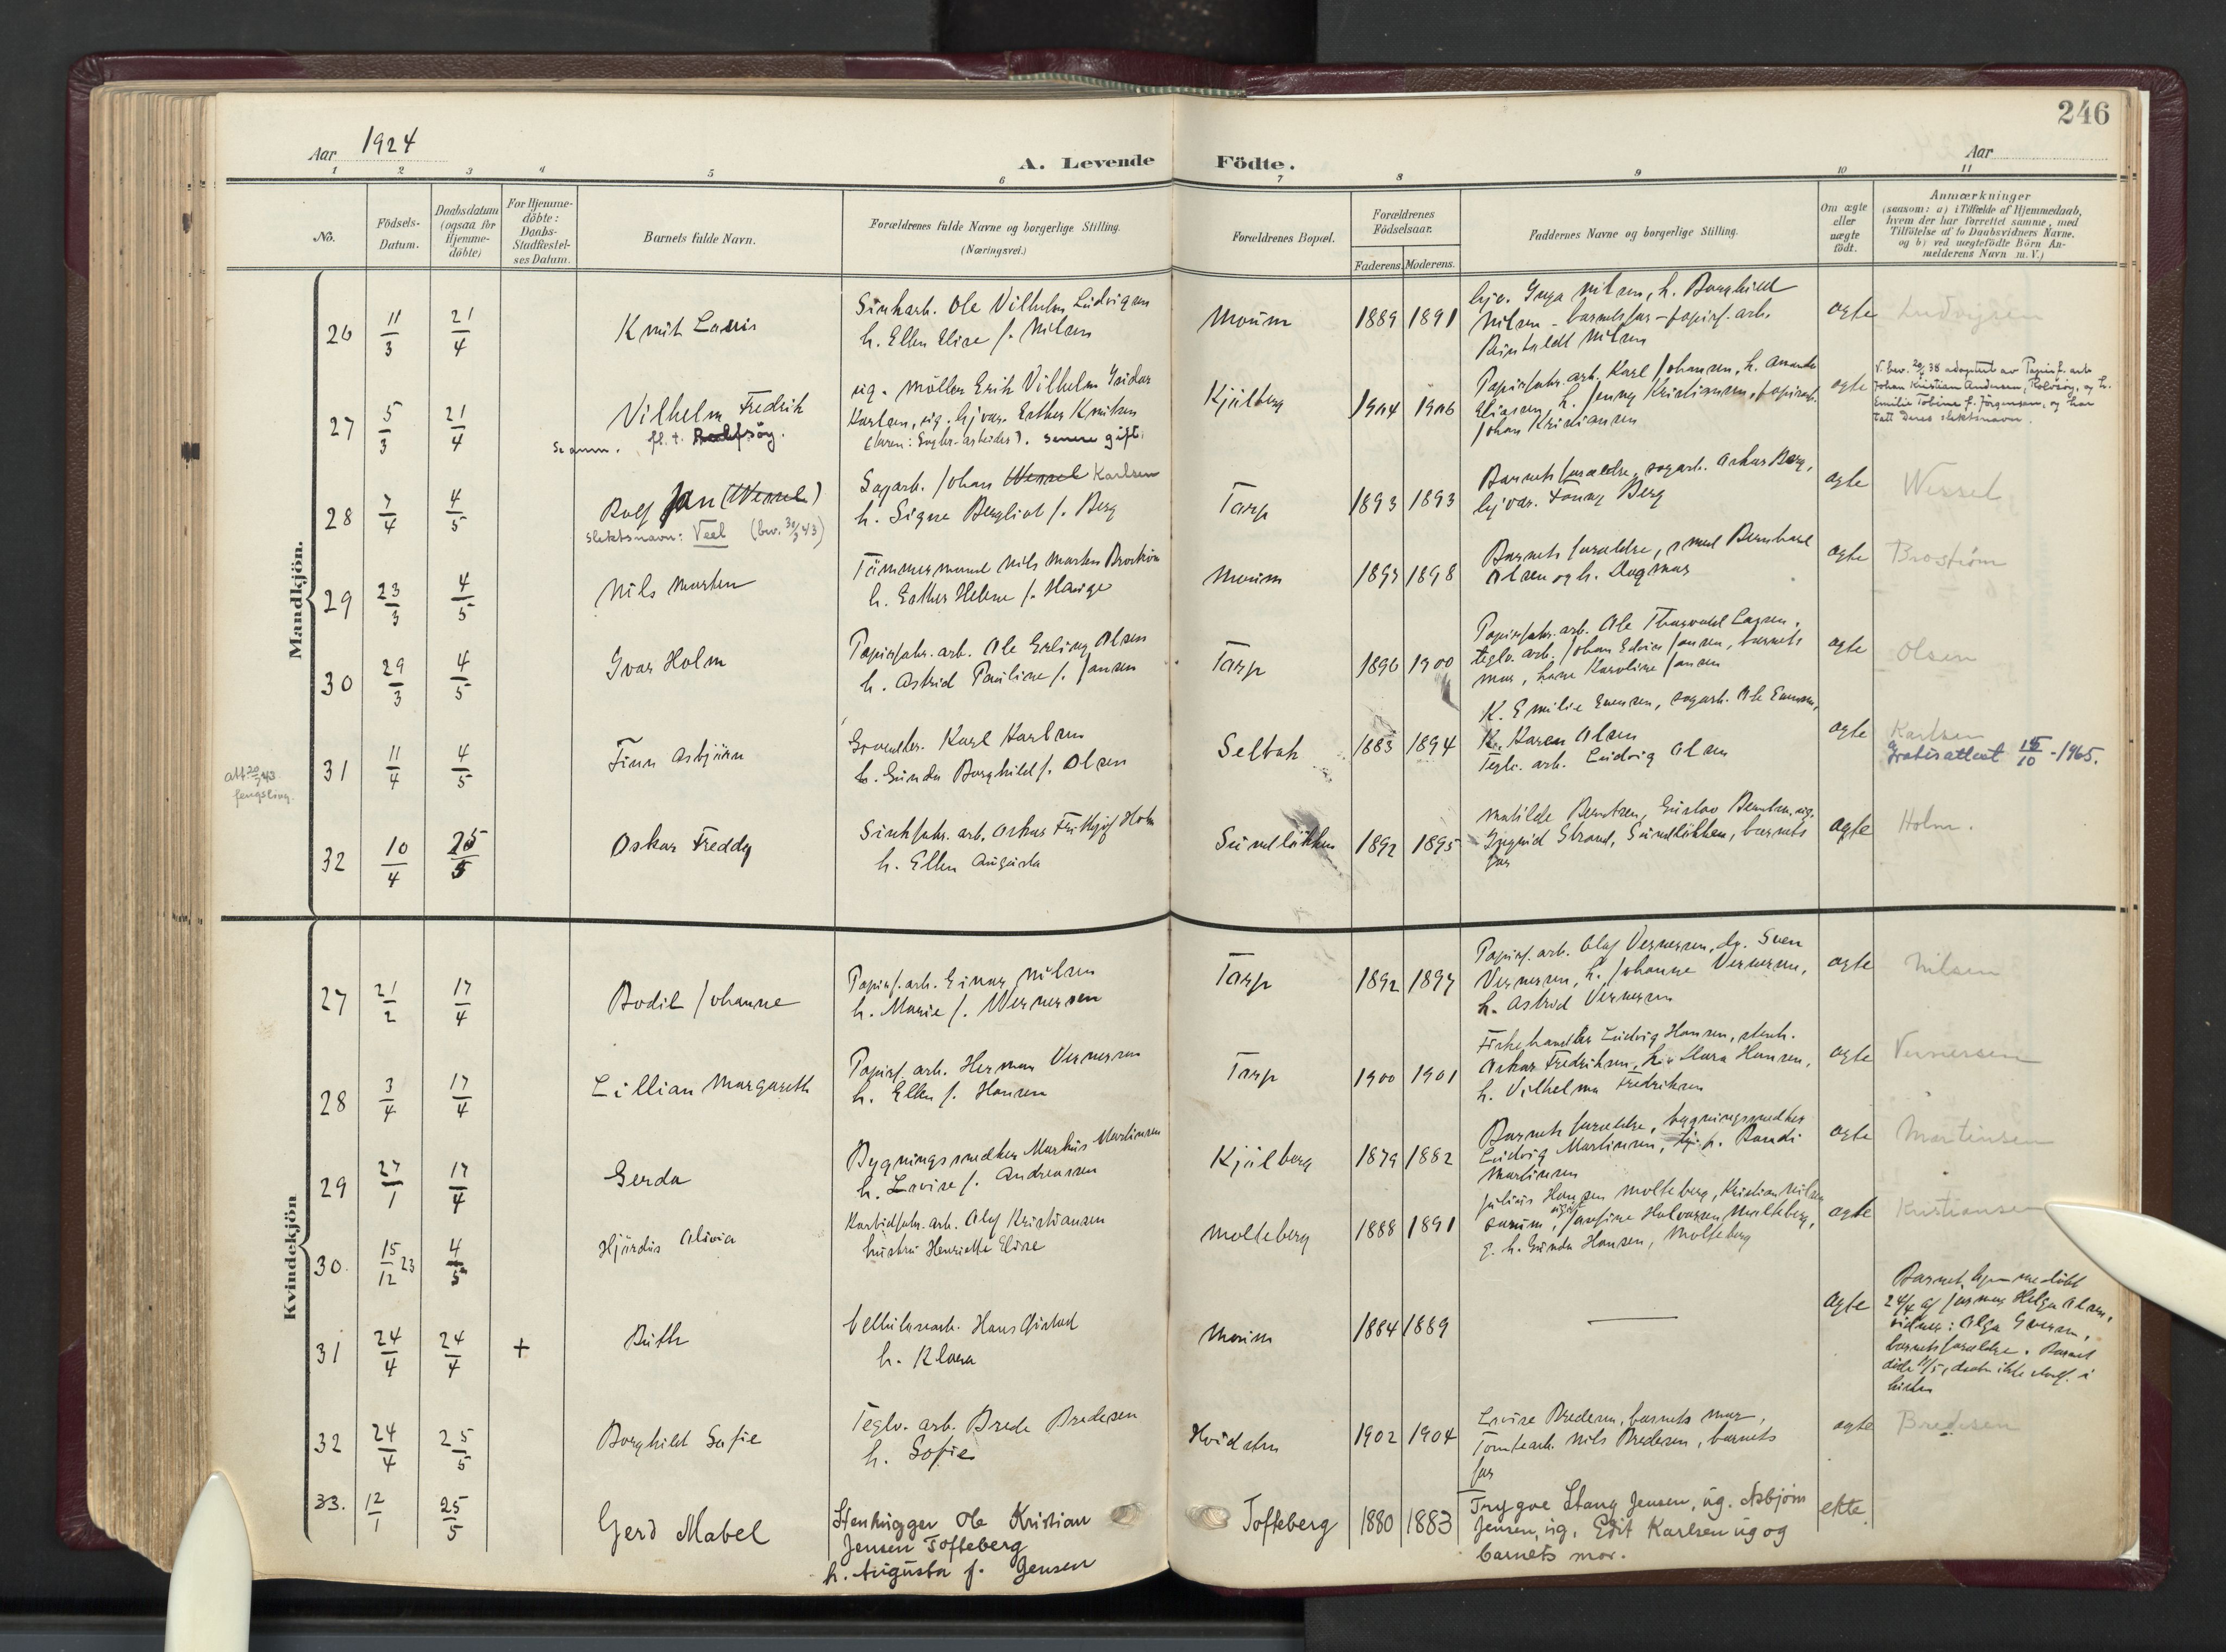 246
Aar 1924
A. Levende Födte.
Aar
1 2 3 4 5 6 7 8 9 10 11
No.
Födsels-
Datum.
Daabsdatum
(ogsaa for
Hjemme-
döbte)
For Hjemme-
döbte:
Daabs-
Stadfæstel-
ses Datum.
Barnets fulde Navn.
Forældrenes fulde Navne og borgerlige Stilling.
(Næringsvei.)
Forældrenes Bopæl.
Forældrenes
Födselsaar.
Faderens. Moderens.
Faddernes Navne og borgerlige Stilling.
Om ægte
eller
uægte
födt.
Anmærkninger
(saasom: a) i Tilfælde af Hjemmedaab,
hvem der har forrettet samme, med
Tilföielse af to Daabsvidners Navne.
og b) ved uægtefödte Börn An-
melderens Navn m. V.)
Mandkjön.
26 11/3 21/4
Knut Lauis
Sinkarb. Ole Vilhelm Ludvigsen
h. Ellen Elise f. Nilsen
Moum
1889 1891
Nilsen - barnets far - papirf. arb.
Nilsen
ægte
Ludvigsen
27 5/3 21/4
Vilhelm Fredrik
fl. t. Rolfsøy.
ug. Möller Erik Vilhelm Isidor
Karlsen, ug. hjvær. Esther Knutsen
senere gift.
Kjölberg
1904 1906
Papirfabr. arb. Karl Johansen, h. Amanda
Eliasen, h. Jenny Kristiansen, papirarb.
Johan Kristiansen
ægte
V. bev. 20/4 38 adoptert av Papirf. arb
Johan Kristian Andersen, Rolvsøy, og h.
Emilie Tobine f. Jörgensen, og har
tatt deres slektsnavn.
28 7/4 4/5
Rolf Jan (Wessel)
slektsnavn: Veel (bev. 30/3 43)
Sagarb. Johan Wessel Karlsen
h. Signe Bergliot f. Berg
Torp
1893 1893
Barnets forældre, sagarb. Oskar Berg,
hjvær. Fanny Berg
ægte
Wessel
29 23/3 4/5
Nils Morten
Tömmermand Nils Morten Broström
h. Esther Helene f. Hauge
Moum
1898
Barnets forældre, smed Bernhard
Olsen og h. Dagmar
ægte
Broström
30 29/3 4/5
Ivar Holm
Papirfabr. arb. Ole Erling Olsen
h. Astrid Pauline f. Jansen
Torp
1896 1900
Papirfabr. arb. Ole Thorvald Larsen,
teglv. arb. Johan Edvin Jansen, barnets
mor, Karoline Jansen
ægte
Olsen
31 11/4 4/5
fengsling.
Finn Asbjörn
Karl Karlsen
h. Gunda Borghild f. Olsen
Selbak
1883 1894
K. Emilie Evensen, sagarb. Ole Evensen,
K. Karen Olsen
Teglv. arb. Ludvig Olsen
ægte
Karlsen
Gratisattest 15/10 - 1965.
32 10/4 25/5
Oskar Freddy
Sinkfabr. arb. Oskar Fritjof Holm
h. Ellen Augusta
Sundlökken
1892 1895
Matilde Berntsen, Gustav Berntsen, ug.
Sigrid Strand, Sundlökken, barnets
far
ægte
Holm.
Kvindekjön
27 21/2 17/4
Bodil Johanne
Papirf. arb. Einar Nilsen
h. Marie f. Wernersen
Torp
1892 1897
Papirf. arb. Olaf Vernersen, do. Sven
Vernersen, h. Johanne Vernersen,
h. Astrid Vernersen
ægte
Nilsen
28 3/4 17/4
Lillian Margareth
Papirf. arb. Herman Vernersen
h. Ellen f. Hansen
Torp
1900 1901
Fiskehandler Ludvig Hansen, stenh.
Oskar Fredriksen, h. Klara Hansen,
h. Vilhelma Fredriksen
ægte
Vernersen
29 27/1 17/4
Gerda
Bygningssnedker Markus Martinsen
h. Lovise f. Andreassen
Kjölberg
1879 1882
Barnets forældre, bygningssnedker
Ludvig Martinsen, Randi
Martinsen
ægte
Martinsen
30. 15/12 23 4/5
Hjördis Alivia
Karbidfabr. arb. Olaf Kristiansen
hustru Henriette Elise
Molteberg
1888 1891
Julius Hansen Molteberg, Kristian Nilsen
Josefine Halvorsen, Molteberg,
g. h. Gunda Hansen, Molteberg
ægte
Kristiansen
31 24/4 24/4 +
Ruth
Cellulosearb. Hans
h. Klara
Moum
1884 1889
ægte
Barnet hjemmedöbt
24/4 af jormor Helga Olsen,
vidner: Olga Iversen,
barnets forældre. Barnet
döde 11/5, daaben ikke stadf. i
kirken
32 24/4 25/5
Borghild Sofie
Teglv. arb. Brede Bredesen
h. Sofie
Hvidsten
1902 1904
Lovise Bredesen, barnets mor,
Tomtearb. Nils Bredesen, barnets
far
ægte
Bredesen
33. 12/1 25/5
Gerd Mabel
Stenhugger Ole Kristian
Jensen Tofteberg
h. Augusta f. Jensen
Tofteberg
1880 1883
Trygve Stang Jensen, ug. Asbjørn
Jensen, ug. Edit Karlsen ug og
barnets mor.
ekte